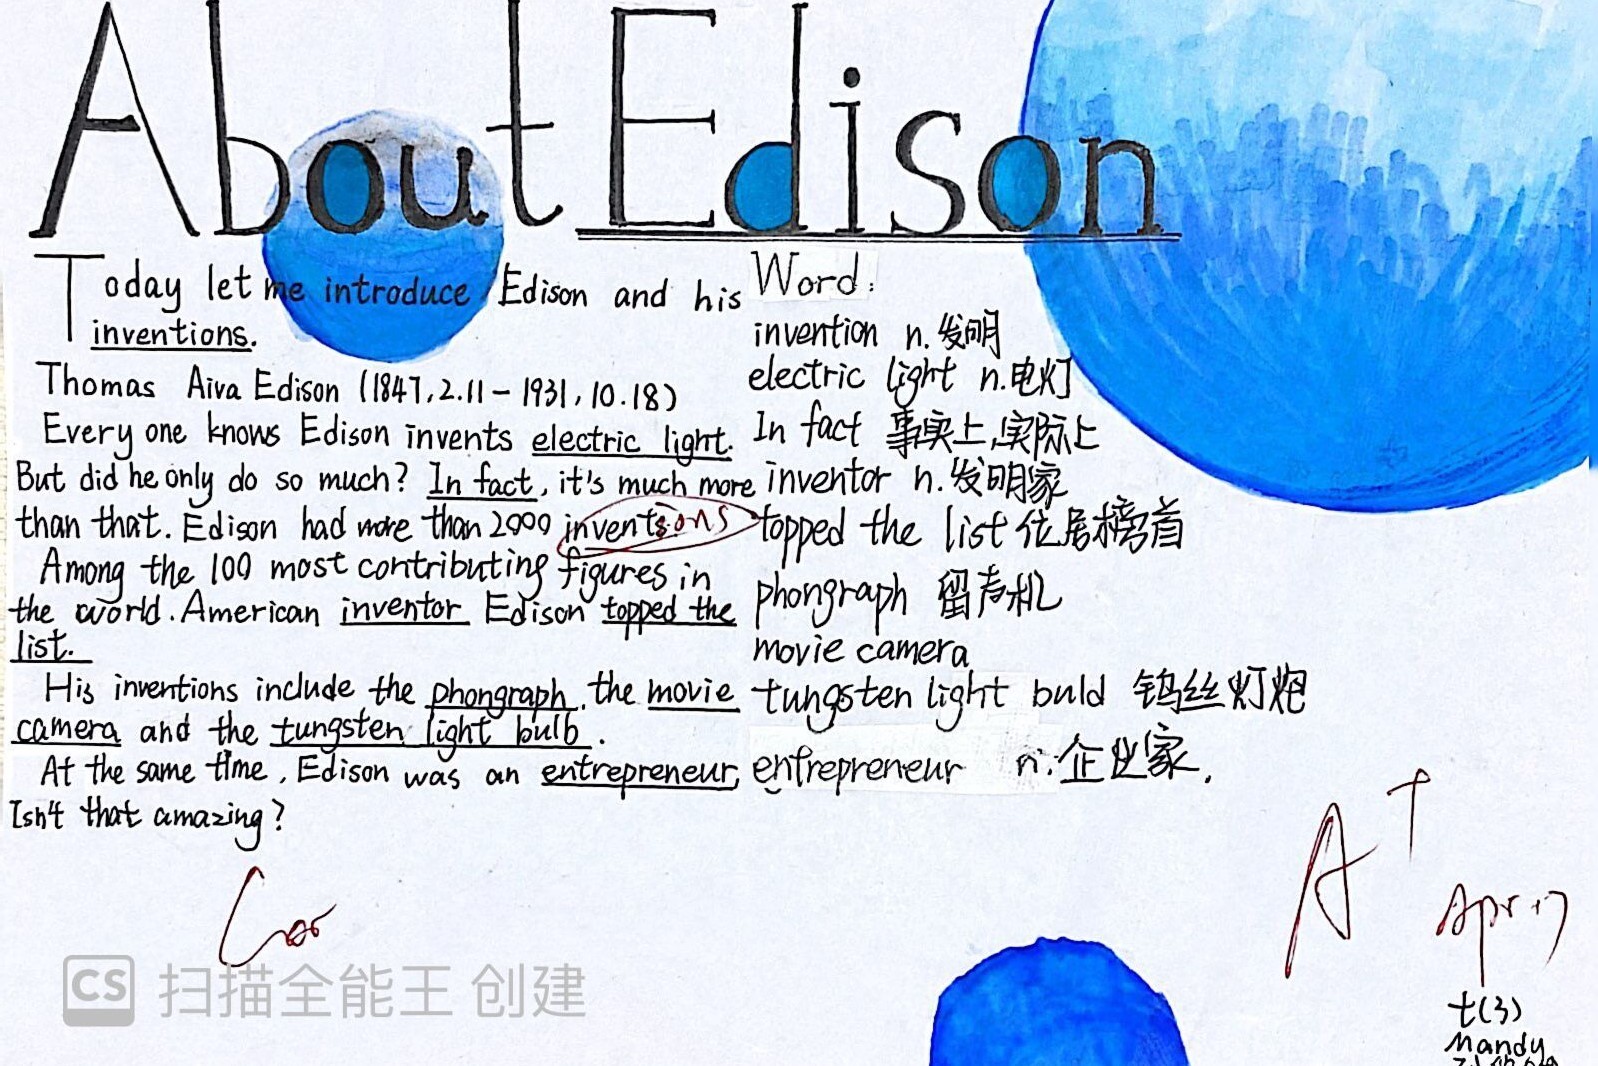 About Edison
Today let me introduce Edison and his
inventions.
Thomas Aiva Edison (1847.2.11-1931.10.18)
Every one knows Edison invents electric light.
But did he only do so much? In fact, it's much more
than that. Edison had more than 2000 invents.
ons
Among the 100 most contributing figures in
the world. American inventor Edison topped the
list.
His inventions include the phongraph, the movie
camera and the tungsten light bulb.
At the same time, Edison was an entrepreneur,
Isn't that amazing?
Word:
invention n.发明
electric light n.电灯
In fact 事实上,实际上
inventor n.发明家
topped the list 位居榜首
phongraph 留声机
movie camera
tungsten light buld 钨丝灯炮
entrepreneur n.企业家.
A+
Apr.17
七(3)
Mandy
CS 扫描全能王 创建